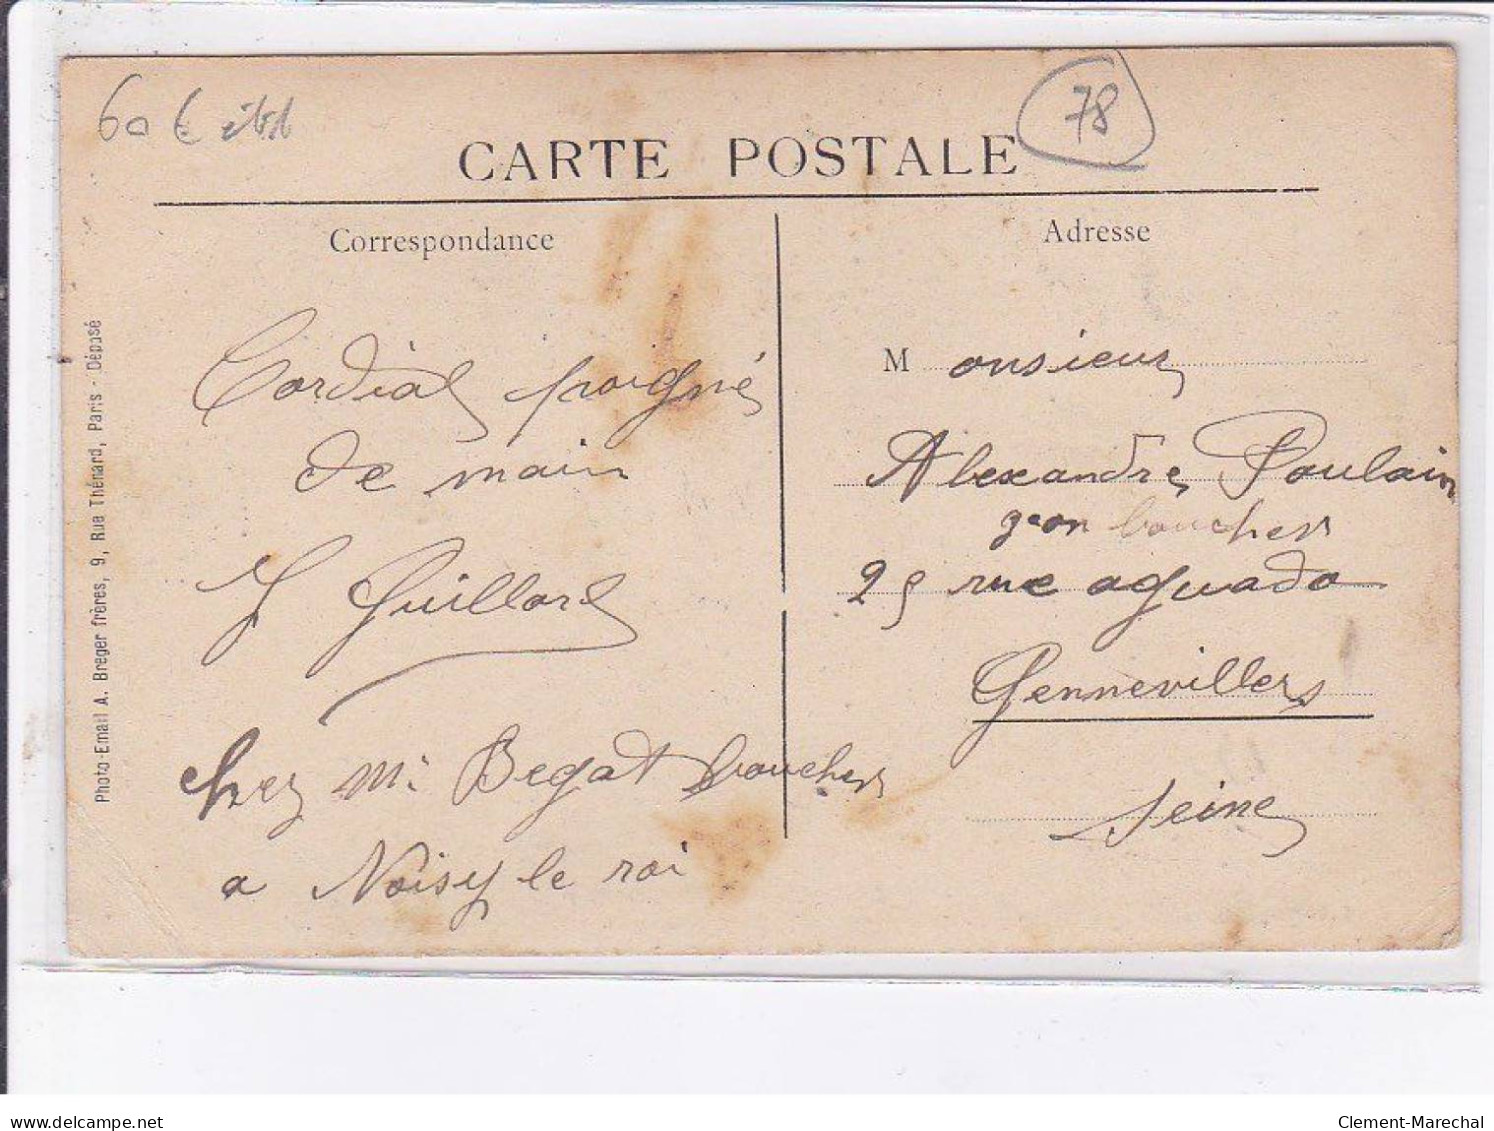 60 €
78
CARTE POSTALE
Correspondance
Adresse
Cordial poigné
de main
J Guillard
chez Mr Begat boucher
a Noisy le roi
M onsieur
Alexandre Poulain
gcon boucher
25 rue aguado
Gennevillers
Seine
Photo-Email A. Breger frères, 9, Rue Thénard, Paris - Déposé
www.delcampe.net
Clement-Marechal